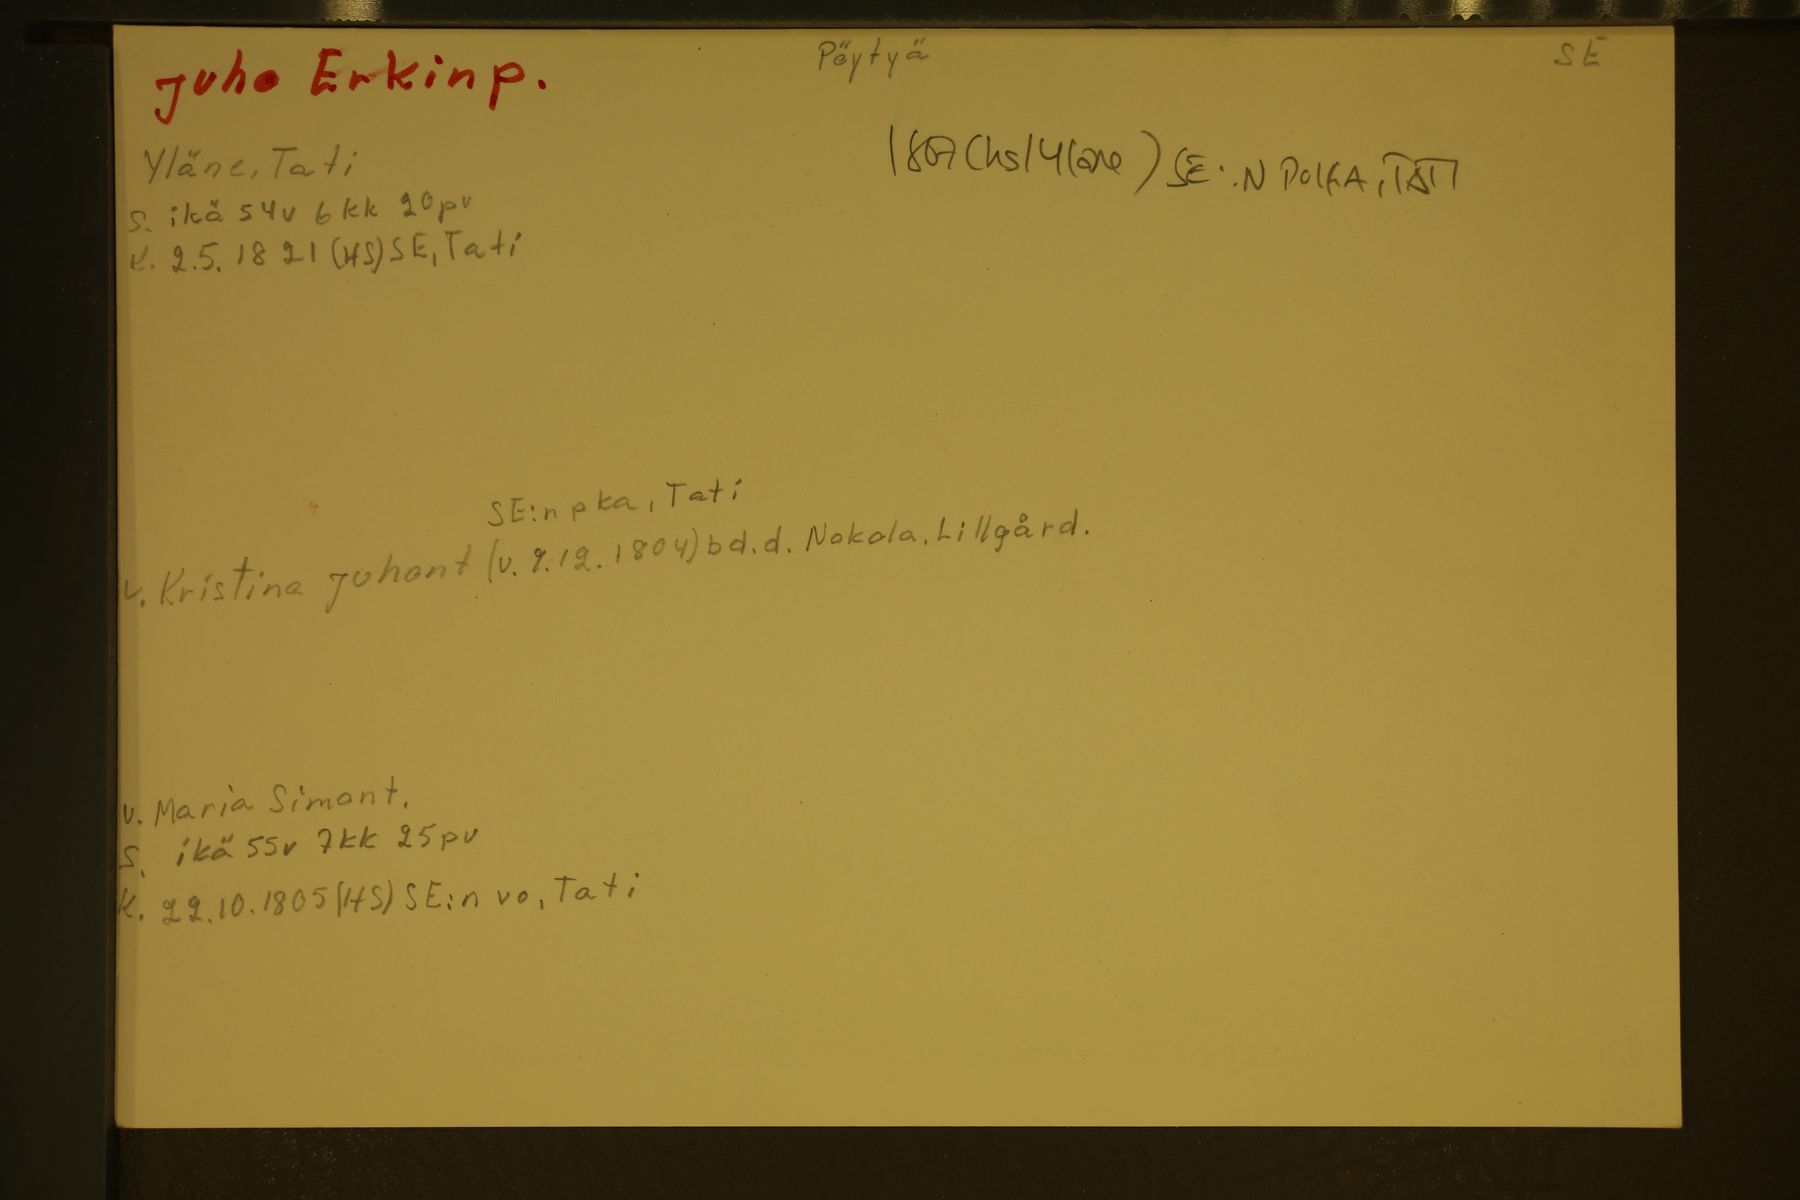 Juho Erkinp.
Pöytyä
SE
Yläne, Tati
s. ikä 54v 6kk 20pv
k. 2.5.1821 (HS) SE, Tati
1807 (hs/Yläne) SE:N POIKA, TATI
SE:n pka, Tati
v. Kristina Juhont (v. 9.12.1804) bd.d. Nokola, Lillgård.
v. Maria Simont.
s. ikä 55v 7kk 25pv
k. 22.10.1805 (HS) SE:n vo, Tati